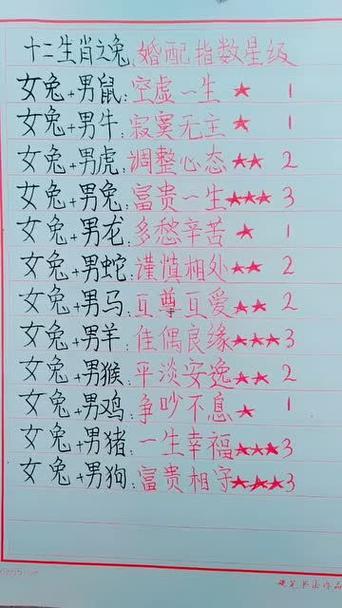 十二生肖之兔,婚配指数星级
女兔+男鼠:空虚一生★ 1
女兔+男牛:寂寞无主★ 1
女兔+男虎:调整心态★★ 2
女兔+男兔:富贵一生★★★ 3
女兔+男龙:多愁辛苦★ 1
女兔+男蛇:谨慎相处★★ 2
女兔+男马:互尊互爱★★ 2
女兔+男羊:佳偶良缘★★★3
女兔+男猴:平淡安逸★★ 2
女兔+男鸡:争吵不息★ 1
女兔+男猪:一生幸福★★★3
女兔+男狗:富贵相守★★★3
硬笔书法作品